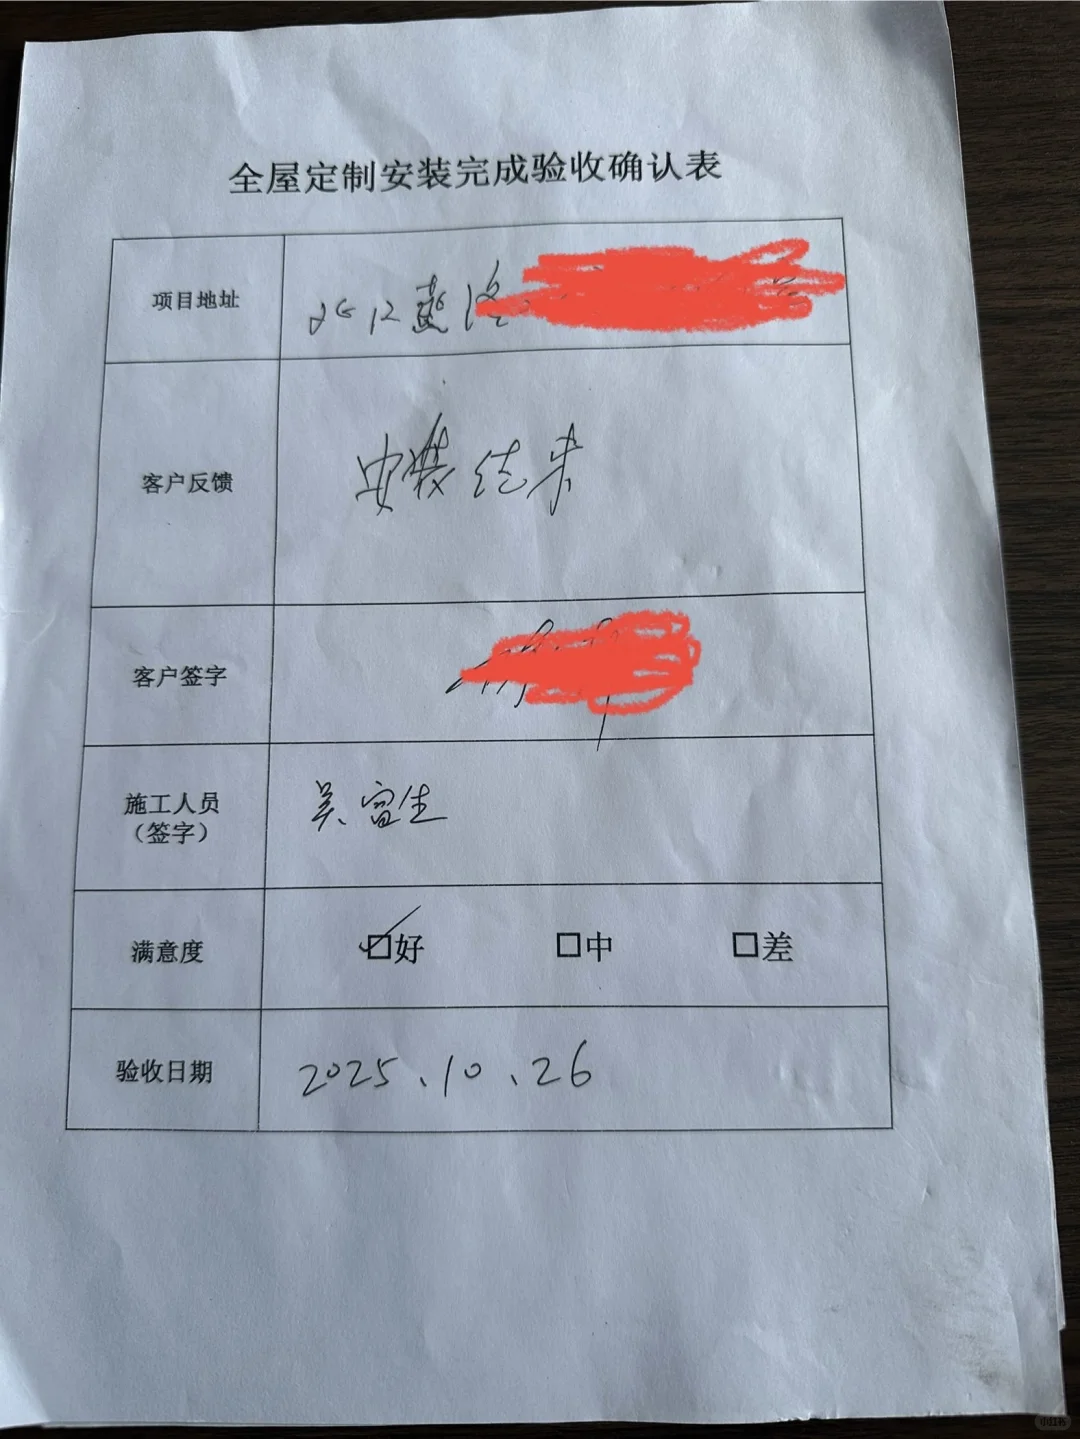 全屋定制安装完成验收确认表
项目地址
北区燕
客户反馈
安装结束
客户签字
施工人员
（签字）
吴富生
满意度
☑好 □中 □差
验收日期
2025、10、26
小红书